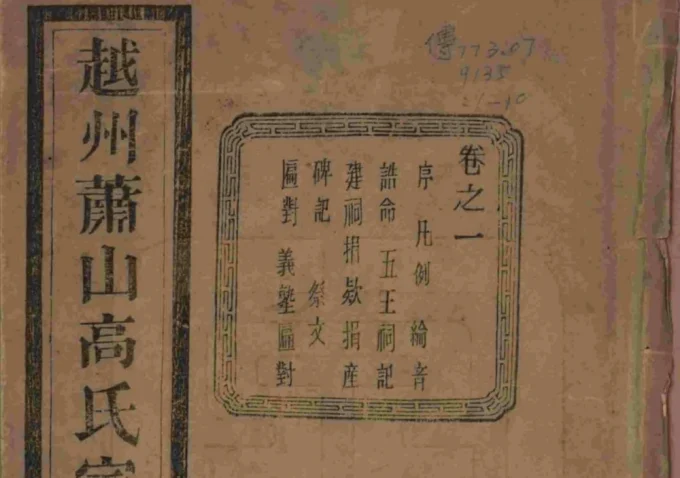 傳 773.07
9135
卷之一
序 凡例 綸音
誥命 五王祠記
建祠捐欵捐產
碑記 祭文
匾對 義塾匾對
越州蕭山高氏